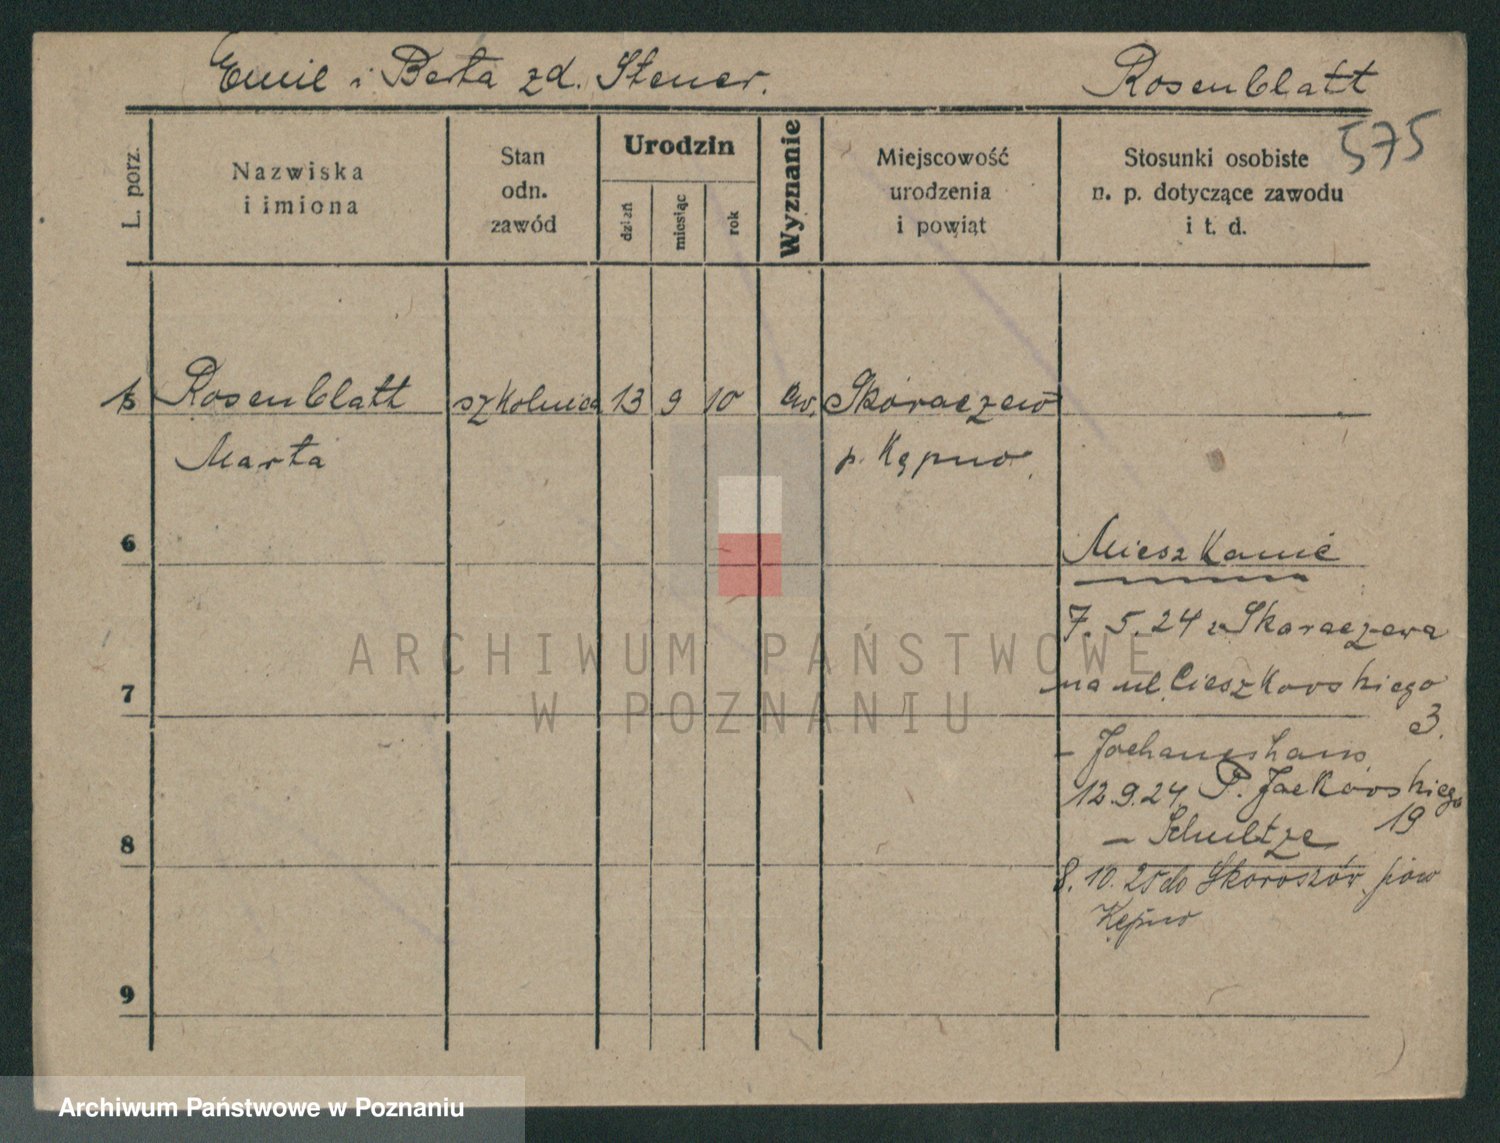 Emil i Berta zd. Stener.
Rosenblatt
575
L. porz.
Nazwiska
i imiona
Stan
odn.
zawód
Urodzin
dzień
miesiąc
rok
Wyznanie
Miejscowość
urodzenia
i powiąt
Stosunki osobiste
n. p. dotyczące zawodu
i t. d.
5 Rosenblatt szkolnica 13 9 10 ew. Skoraczew
Marta p. Kępno.
6
Mieszkanie
7. 5. 24 z Skoraczewa
7
na ul. Cieszkowskiego
3.
- Johanneshaus
12.9.24 P. Jackowskiego
19
8
- Schultze
8. 10. 25 do Skoroszów pow
Kępno
9
ARCHIWUM PAŃSTWOWE
W POZNANIU
Archiwum Państwowe w Poznaniu